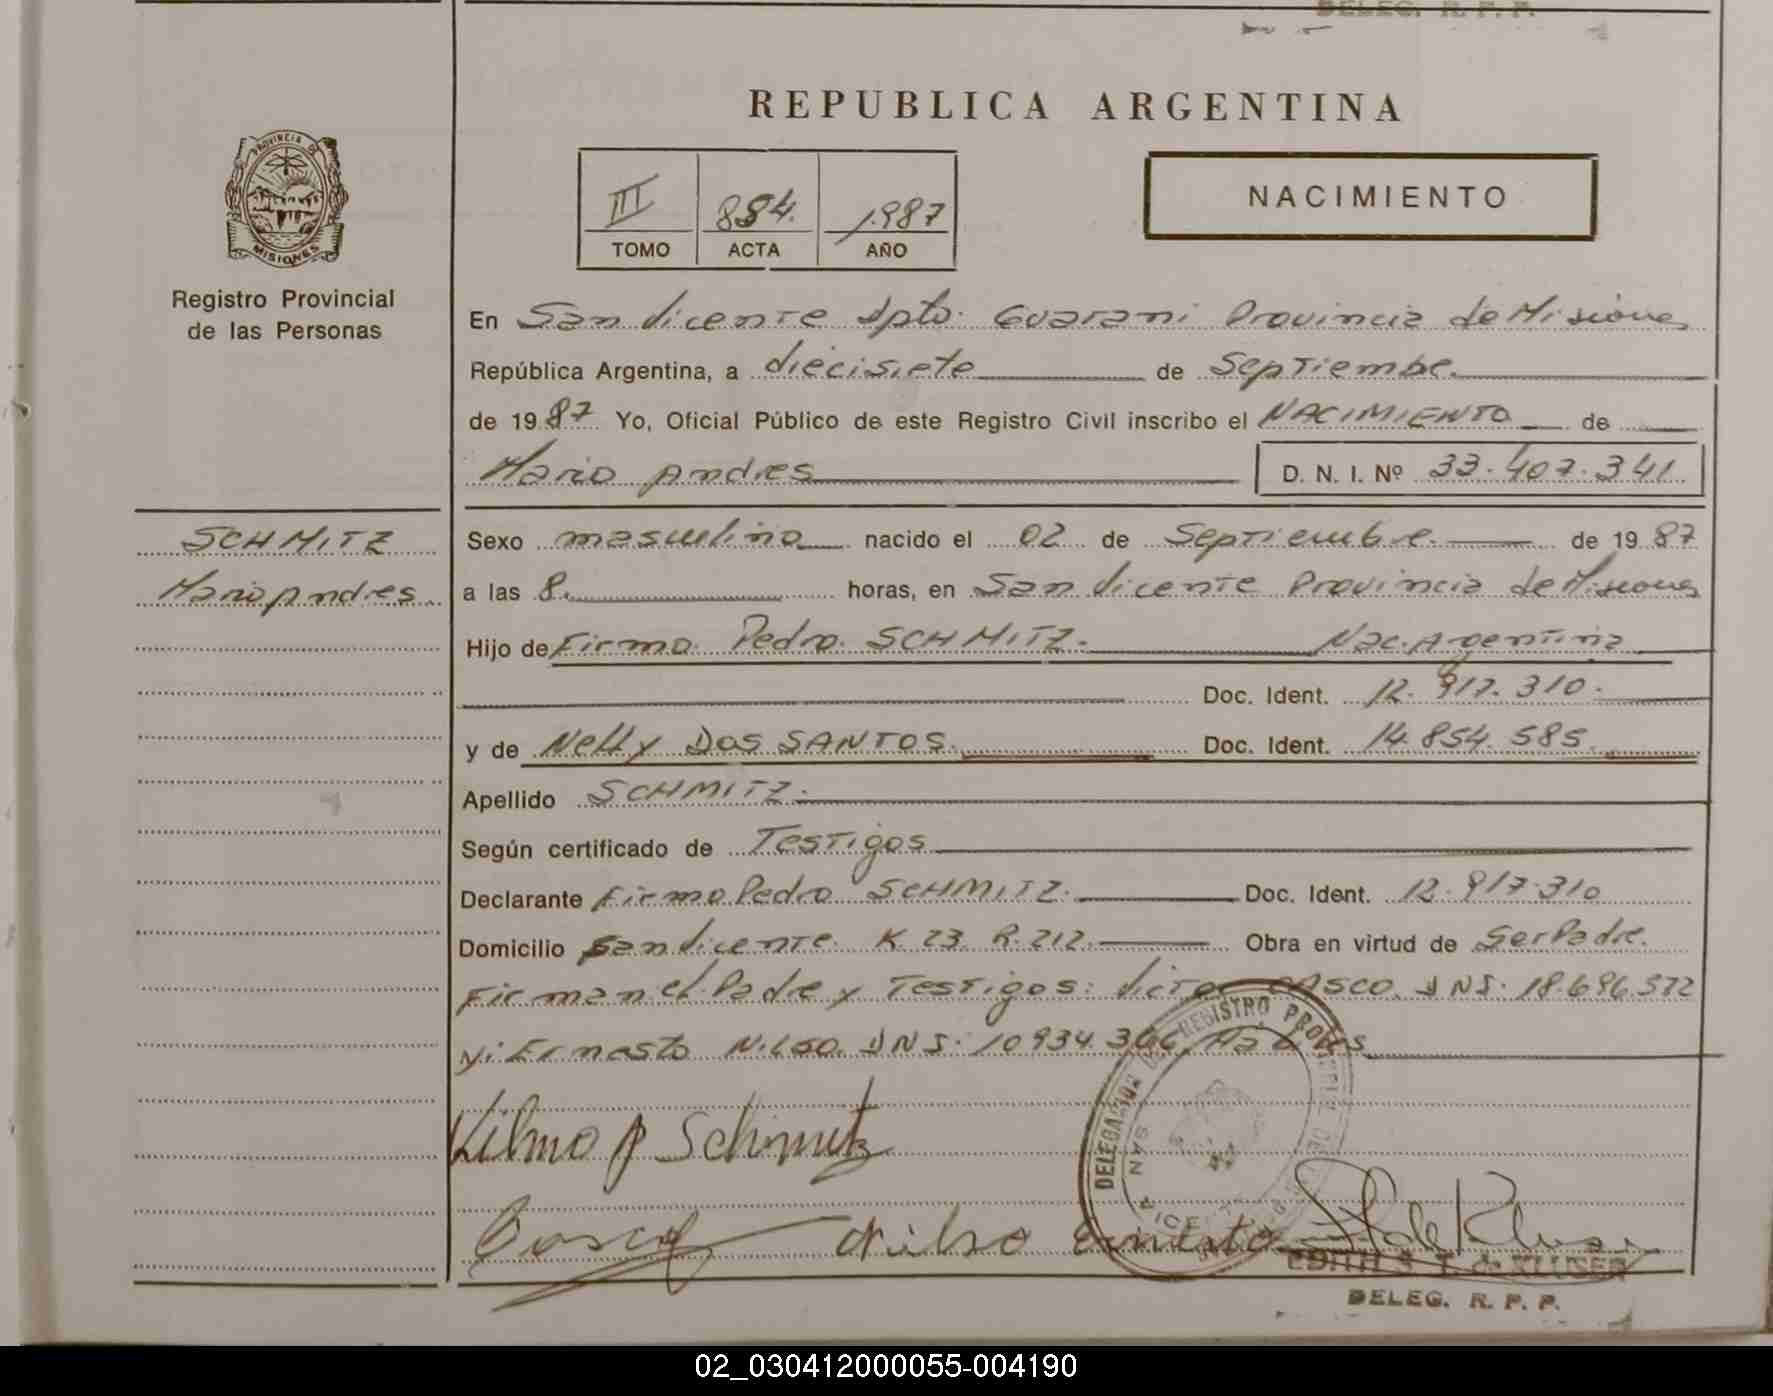 DELEG. R. P. P.
REPUBLICA ARGENTINA
PROVINCIA DE
MISIONES
Registro Provincial
de las Personas
III 884. 1987
TOMO ACTA AÑO
NACIMIENTO
En San Vicente Dpto. Guarani Provincia de Misiones
República Argentina, a diecisiete de Septiembe.
de 1987 Yo, Oficial Público de este Registro Civil inscribo el NACIMIENTO de
Mario Andres D. N. I. Nº 33.407.341
SCHMITZ
Mario Andres.
Sexo masculino nacido el 02 de Septiembre. de 1987
a las 8. horas, en San Vicente Provincia de Misiones
Hijo de Firmo Pedro. SCHMITZ. Nac. Argentina
Doc. Ident. 12.917.310.
y de Nelly DOS SANTOS. Doc. Ident. 14.854.585.
Apellido SCHMITZ.
Según certificado de Testigos
Declarante Firmo Pedro SCHMITZ. Doc. Ident. 12.917.310
Domicilio San Vicente. K 23 R.212. Obra en virtud de Ser Padre.
Firman el Padre y Testigos: Victor CASCO. DNI. 18.696.372
y: Ernesto DNI. 10934.
P Schmitz
Ernesto
DELEGACION REGISTRO PROVINCIAL DE
SAN VICENTE
EDITH S. T. de KLUSER
DELEG. R. P. P.
02_030412000055-004190